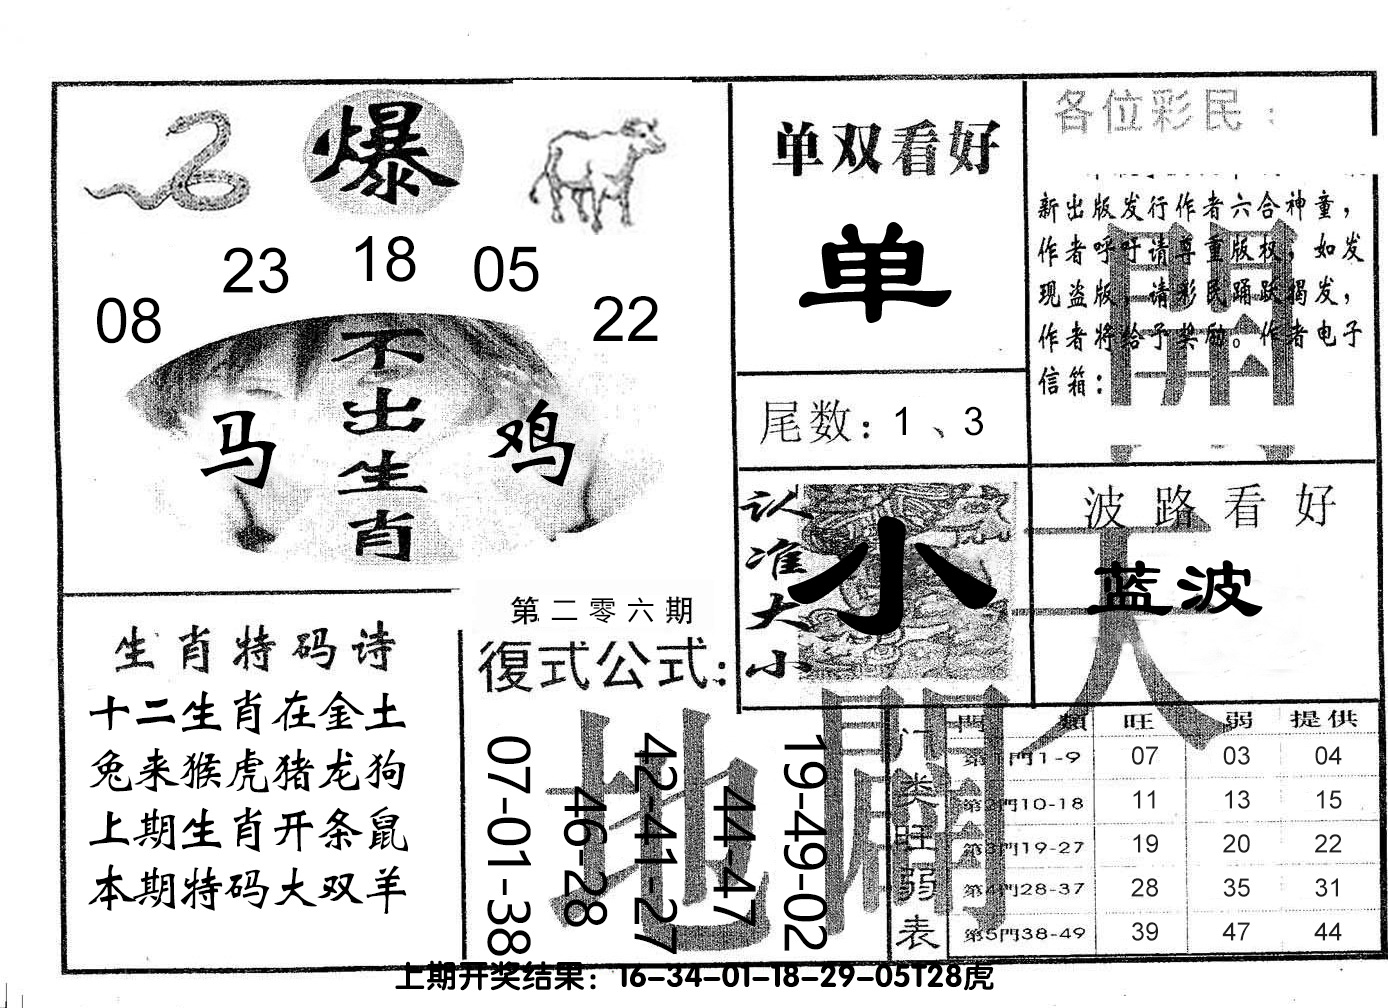 爆
23 18 05
08 22
不出生肖
马 鸡
单双看好
单
尾数：1、3
各位彩民：
新出版发行作者六合神童，
作者呼吁请尊重版权，如发
现盗版，请彩民踊跃揭发，
作者将给予奖励。作者电子
信箱：
認准大小
小
波路看好
蓝波
天
開
生肖特码诗
十二生肖在金土
兔来猴虎猪龙狗
上期生肖开条鼠
本期特码大双羊
第二零六期
復式公式：
07-01-38
46-28
42-41-27
44-47
19-49-02
地
門类旺弱表
門類 旺 弱 提供
第1門1-9 07 03 04
第2門10-18 11 13 15
第3門19-27 19 20 22
第4門28-37 28 35 31
第5門38-49 39 47 44
上期开奖结果：16-34-01-18-29-05T28虎